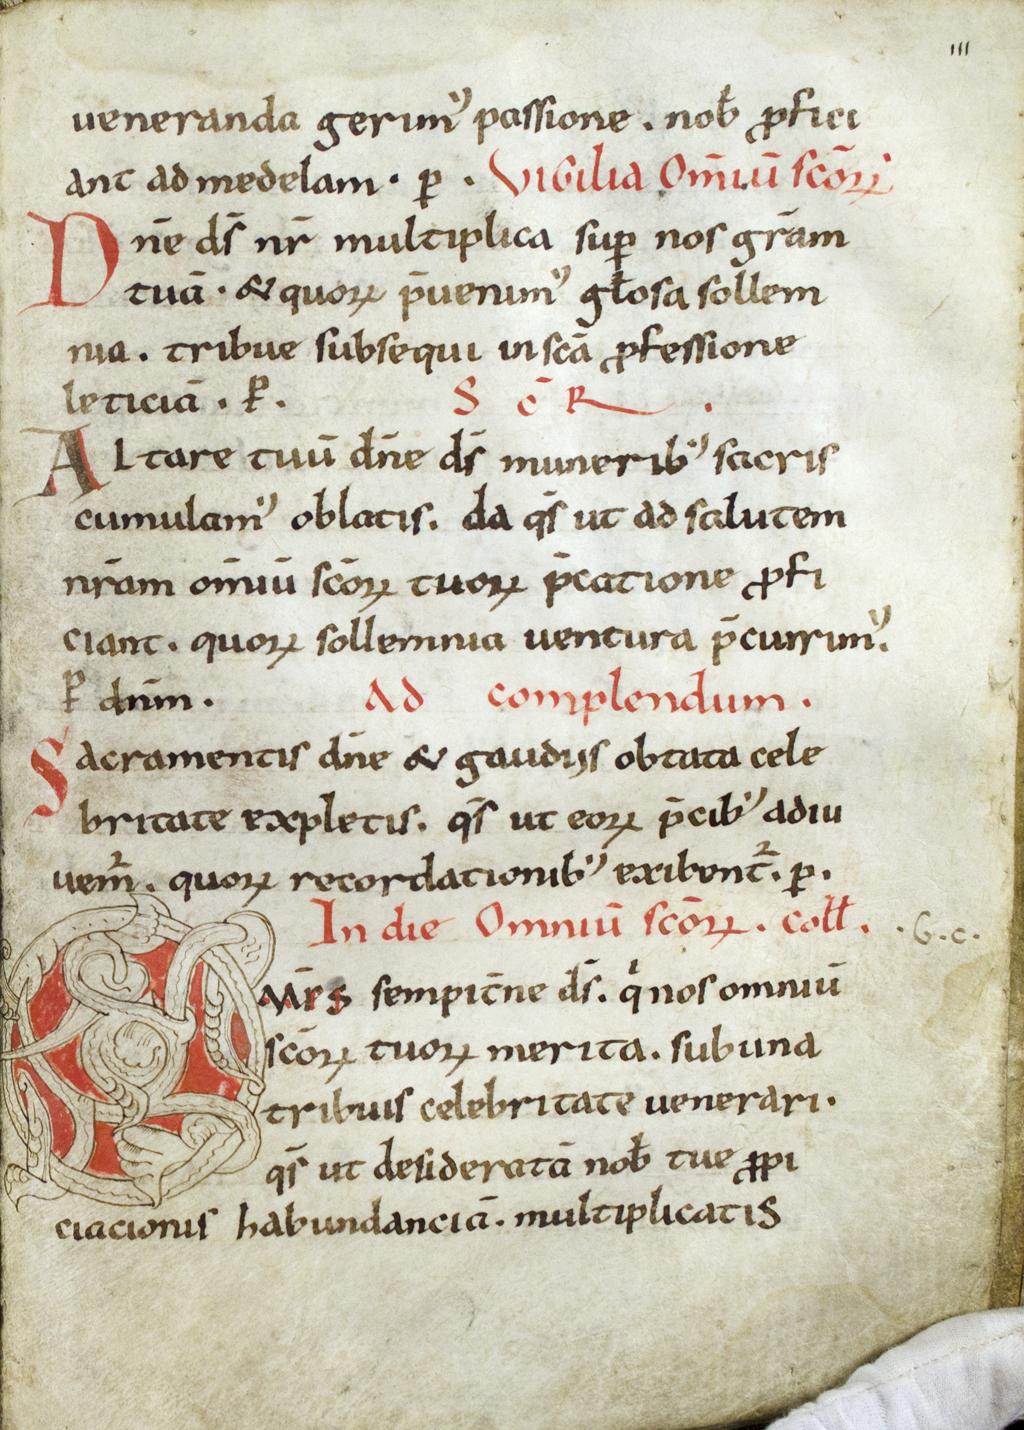 III
ueneranda gerim᾽ passione . nob̄ ꝓfici
ant ad medelam · ꝑ . Vigilia Om̄iū sc̄oꝝ
Dn̄e ds̄ nr̄ multiplica suꝑ nos gr̄am
tuā · & quoꝝ p̄uenim᾽ gl̄osa sollem
nia . tribue subsequi in sc̄a ꝓfessione
leticiā . P̄ . S C̄ R .
Altare tuū dn̄e ds̄ munerib᾽ sacris
cumulam᾽ oblatis . da qs̄ ut ad salutem
nr̄am om̄iū sc̄oꝝ tuoꝝ p̄catione ꝓfi
ciant . quoꝝ sollemnia uentura p̄currim᾽ .
P̄ dn̄m . Ad complendum .
Sacramentis dn̄e & gaudijs obtata cele
britate expletis . qs̄ ut eoꝝ p̄cib᾽ adiu
uem̄r . quoꝝ recordationib᾽ exibent̄r . ꝑ .
In die Omniū sc̄oꝝ . coll̄ . · G · c ·
Om̄ps sempit̄ne ds̄ . qͥ nos omniū
sc̄oꝝ tuoꝝ merita . sub una
tribuis celebritate uenerari .
qs̄ ut desideratā nob̄ tue ꝓpi
ciacionis habundanciā . multiplicatis